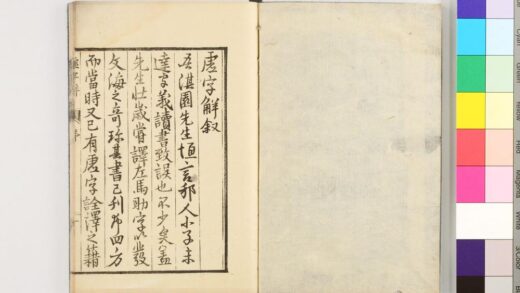 虚字解叙
吾淇園先生恒言邦人小子未
達字義讀書致誤也不少矣蓋
先生壮歳嘗譯左馬助字以發
文海之奇珎其書已刊布四方
而當時又已有虚字詮譯之藉